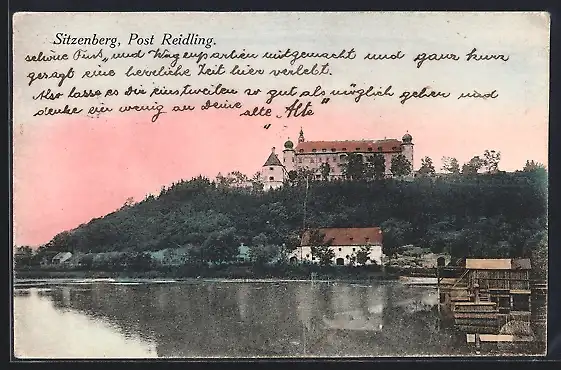 Sitzenberg, Post Reidling.
schöne Fuß„ und Wagenpartien mitgemacht und ganz kurz
gesagt eine herrliche Zeit hier verlebt.
Also lasse es Dir einstweilen so gut als möglich gehen und
denke ein wenig an Deine alte „Alte“